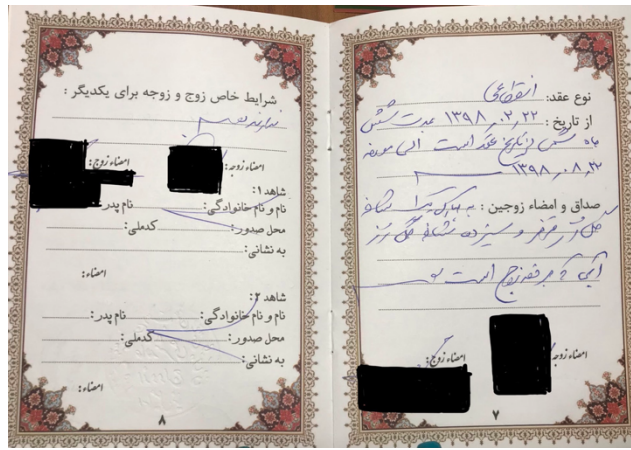 نوع عقد: انقطاعی
از تاریخ: ۱۳۹۸،۰۲،۲۲ بمدت شش
ماه شمسی از تاریخ عقد است الی مورخه
۱۳۹۸،۰۸،۲۲
صداق و امضاء زوجین: شاخه
گل رز قرمز و سیزده شاخه گل رز
آبی زوج است
امضاء زوجه:
امضاء زوج:
۷
شرایط خاص زوج و زوجه برای یکدیگر:
ندارند
امضاء زوجه:
امضاء زوج:
شاهد ۱:
نام و نام خانوادگی: نام پدر:
محل صدور: کدملی:
به نشانی:
امضاء:
شاهد ۲:
نام و نام خانوادگی: نام پدر:
محل صدور: کدملی:
به نشانی:
امضاء:
۸